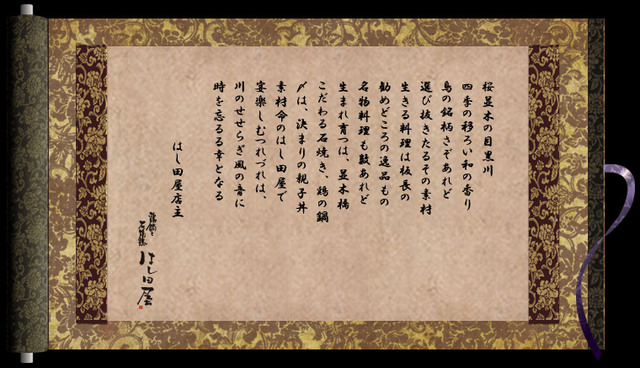 桜並木の目黒川
四季の移ろい和の香り
鳥の銘柄さぞあれど
選び抜きたるその素材
生きる料理は板長の
勧めどころの逸品もの
名物料理も数あれど
生まれ育つは、並木橋
こだわる石焼き、鶏の鍋
〆は、決まりの親子丼
素材命のはし田屋で
宴楽しむつれづれは、
川のせせらぎ風の音に
時を忘るる幸となる
はし田屋店主
はし田屋